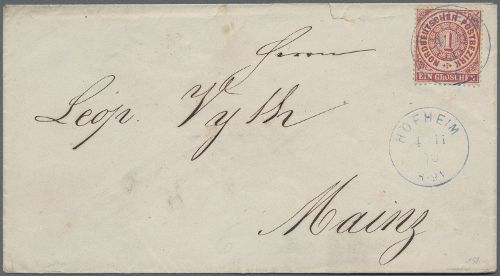 NORDDEUTSCHER POSTBEZIRK
1
EIN GROSCHEN
Herrn
Leop. Vyth
HOFHEIM
4 11
Mainz